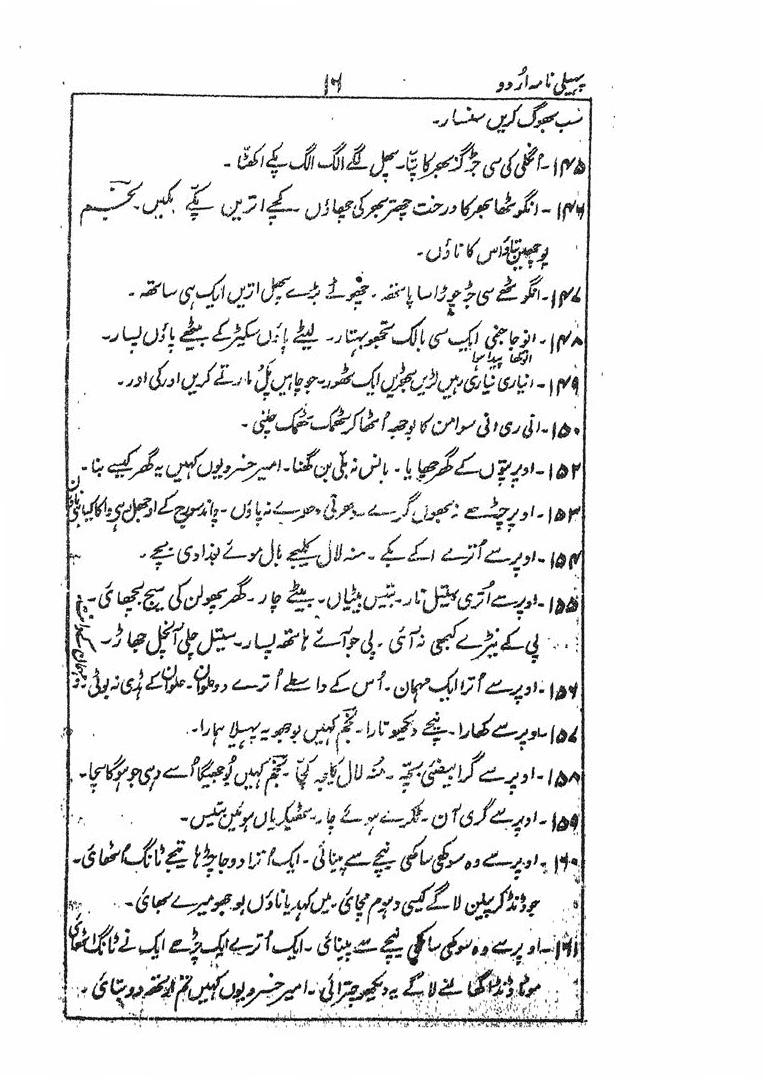 پہیلی نامہ اردو
۱۶
سب بھوگ کریں سنسار۔
۱۴۵۔ اُنگلی کی سی جڑ گز بھر کا پتّا۔ پھل لگے الگ الگ پکے اکھٹا۔
۱۴۶۔ انگوٹھا بھر کا درخت چھتر بھر کی چھاؤں۔ کچے اتریں پکے بکیں۔ نجم
پوچھیں بتاؤ اس کا ناؤں۔
۱۴۷۔ انگوٹھے سی جڑ چوڑا سا پات۔ چھوٹے بڑے پھل اتریں ایک ہی ساتھ۔
۱۴۸۔ انوجا جنی ایک سی بالک بہتار۔ لیٹے پاؤں سکیڑ کے بیٹھے پاؤں پسار۔
انوکھا پیدا ہوا
۱۴۹۔ نیاری نیاری رہیں لڑیں بھڑیں ایک ٹھور۔ جو چاہیں پل مارتے کریں اور کی اور۔
۱۵۰۔ انی ری انی سوا من کا بوجھ اُٹھا کر ٹھمک ٹھمک چلنی۔
۱۵۲۔ اوپر پتوں کے گھر چھایا۔ بانس نہ بلی بن گھنا۔ امیر خسرو یوں کہیں یہ گھر کیسے بنا۔
۱۵۳۔ اوپر چڑھے نہ بھوں گرے۔ دھرتی دھرے نہ پاؤں۔ چاند سورج کے اوجھل ہی واکا کیا
۱۵۴۔ اوپر سے اُترے اکے بکے۔ منہ لال کلیجے بال موئے
۱۵۵۔ اوپر سے اُتری نار۔ بتیس بیٹیاں۔ بیٹے چار۔ گھر پھولن کی سیج بچھائی۔
پی کے نیڑے کبھی نہ آئی۔ پی جو آئے ہاتھ پسار۔ سیتل چلی آنچل جھاڑ۔
۱۵۶۔ اوپر سے اُترا ایک مہمان۔ اُس کے واسطے اُترے دو خوان۔ خوان کے ہڈی نہ بوٹی
۱۵۷۔ اوپر سے کھارا۔ نیچے دیکھو تارا۔ نجم کہیں بوجھو یہ پہیلا ہمارا۔
۱۵۸۔ اوپر سے گرا بیضئی بچہ۔ منہ لال کلیجہ کچا۔ نجم کہیں بوجھیگا اُسے وہی جو ہو گا سچا۔
۱۵۹۔ اوپر سے گری آن۔ ٹکڑے ہوئے چار۔ ٹھیکریاں ہوئیں بتیس۔
۱۶۰۔ اوپر سے وہ سوکھی ساکھی نیچے سے پنیائی۔ ایک اترا دوجا چڑھا تیجے ٹانگ اُٹھائی۔
جو ڈنڈ کر پیلن لاگے کیسی دھوم مچائی۔ میں کہدیا ناؤں بوجھو میرے بھائی۔
۱۶۱۔ اوپر سے وہ سوکھی ساکھی نیچے سے پنیائی۔ ایک اُترے ایک چڑھے ایک نے ٹانگ اٹھائی
موٹا ڈنڈا گھالنے لاگے یہ دیکھو چترائی۔ امیر خسرو یوں کہیں تم ارتھ دو بتائی۔